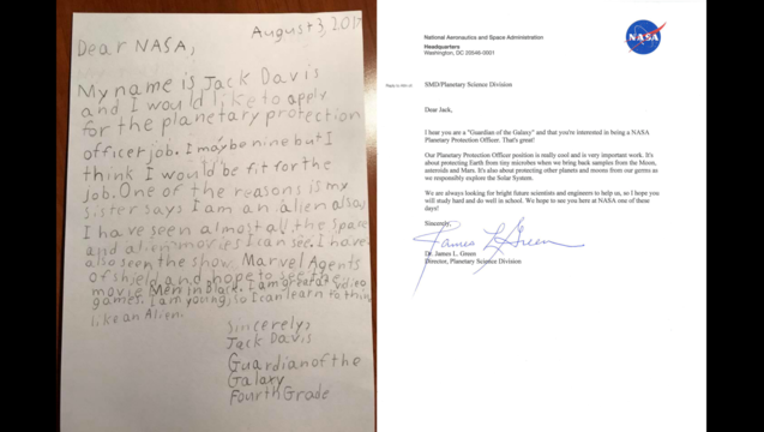 August 3, 2017
Dear NASA,
My name is Jack Davis
and I would like to apply
for the planetary protection
officer job. I may be nine but I
think I would be fit for the
job. One of the reasons is my
sister says I am an alien also
I have seen almost all the space
and alien movies I can see. I have
also seen the show Marvel Agents
of Shield and hope to see the
movie Men in Black. I am great at vdieo
games. I am young, so I can learn to think
like an Alien.
Sincerely,
Jack Davis
Guardian of the
Galaxy
Fourth Grade
National Aeronautics and Space Administration
Headquarters
Washington, DC 20546-0001
NASA
Reply to Attn of:
SMD/Planetary Science Division
Dear Jack,
I hear you are a "Guardian of the Galaxy" and that you're interested in being a NASA
Planetary Protection Officer. That's great!
Our Planetary Protection Officer position is really cool and is very important work. It's
about protecting Earth from tiny microbes when we bring back samples from the Moon,
asteroids and Mars. It's also about protecting other planets and moons from our germs as
we responsibly explore the Solar System.
We are always looking for bright future scientists and engineers to help us, so I hope you
will study hard and do well in school. We hope to see you here at NASA one of these
days!
Sincerely,
James L Green
Dr. James L. Green
Director, Planetary Science Division